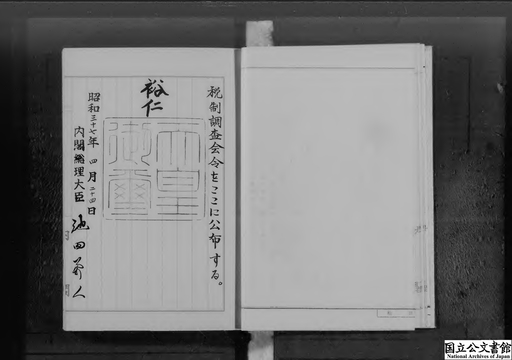 税制調査会令をここに公布する。
裕仁
天皇御璽
昭和三十七年四月二十四日
内閣総理大臣 池田勇人
国立公文書館
National Archives of Japan